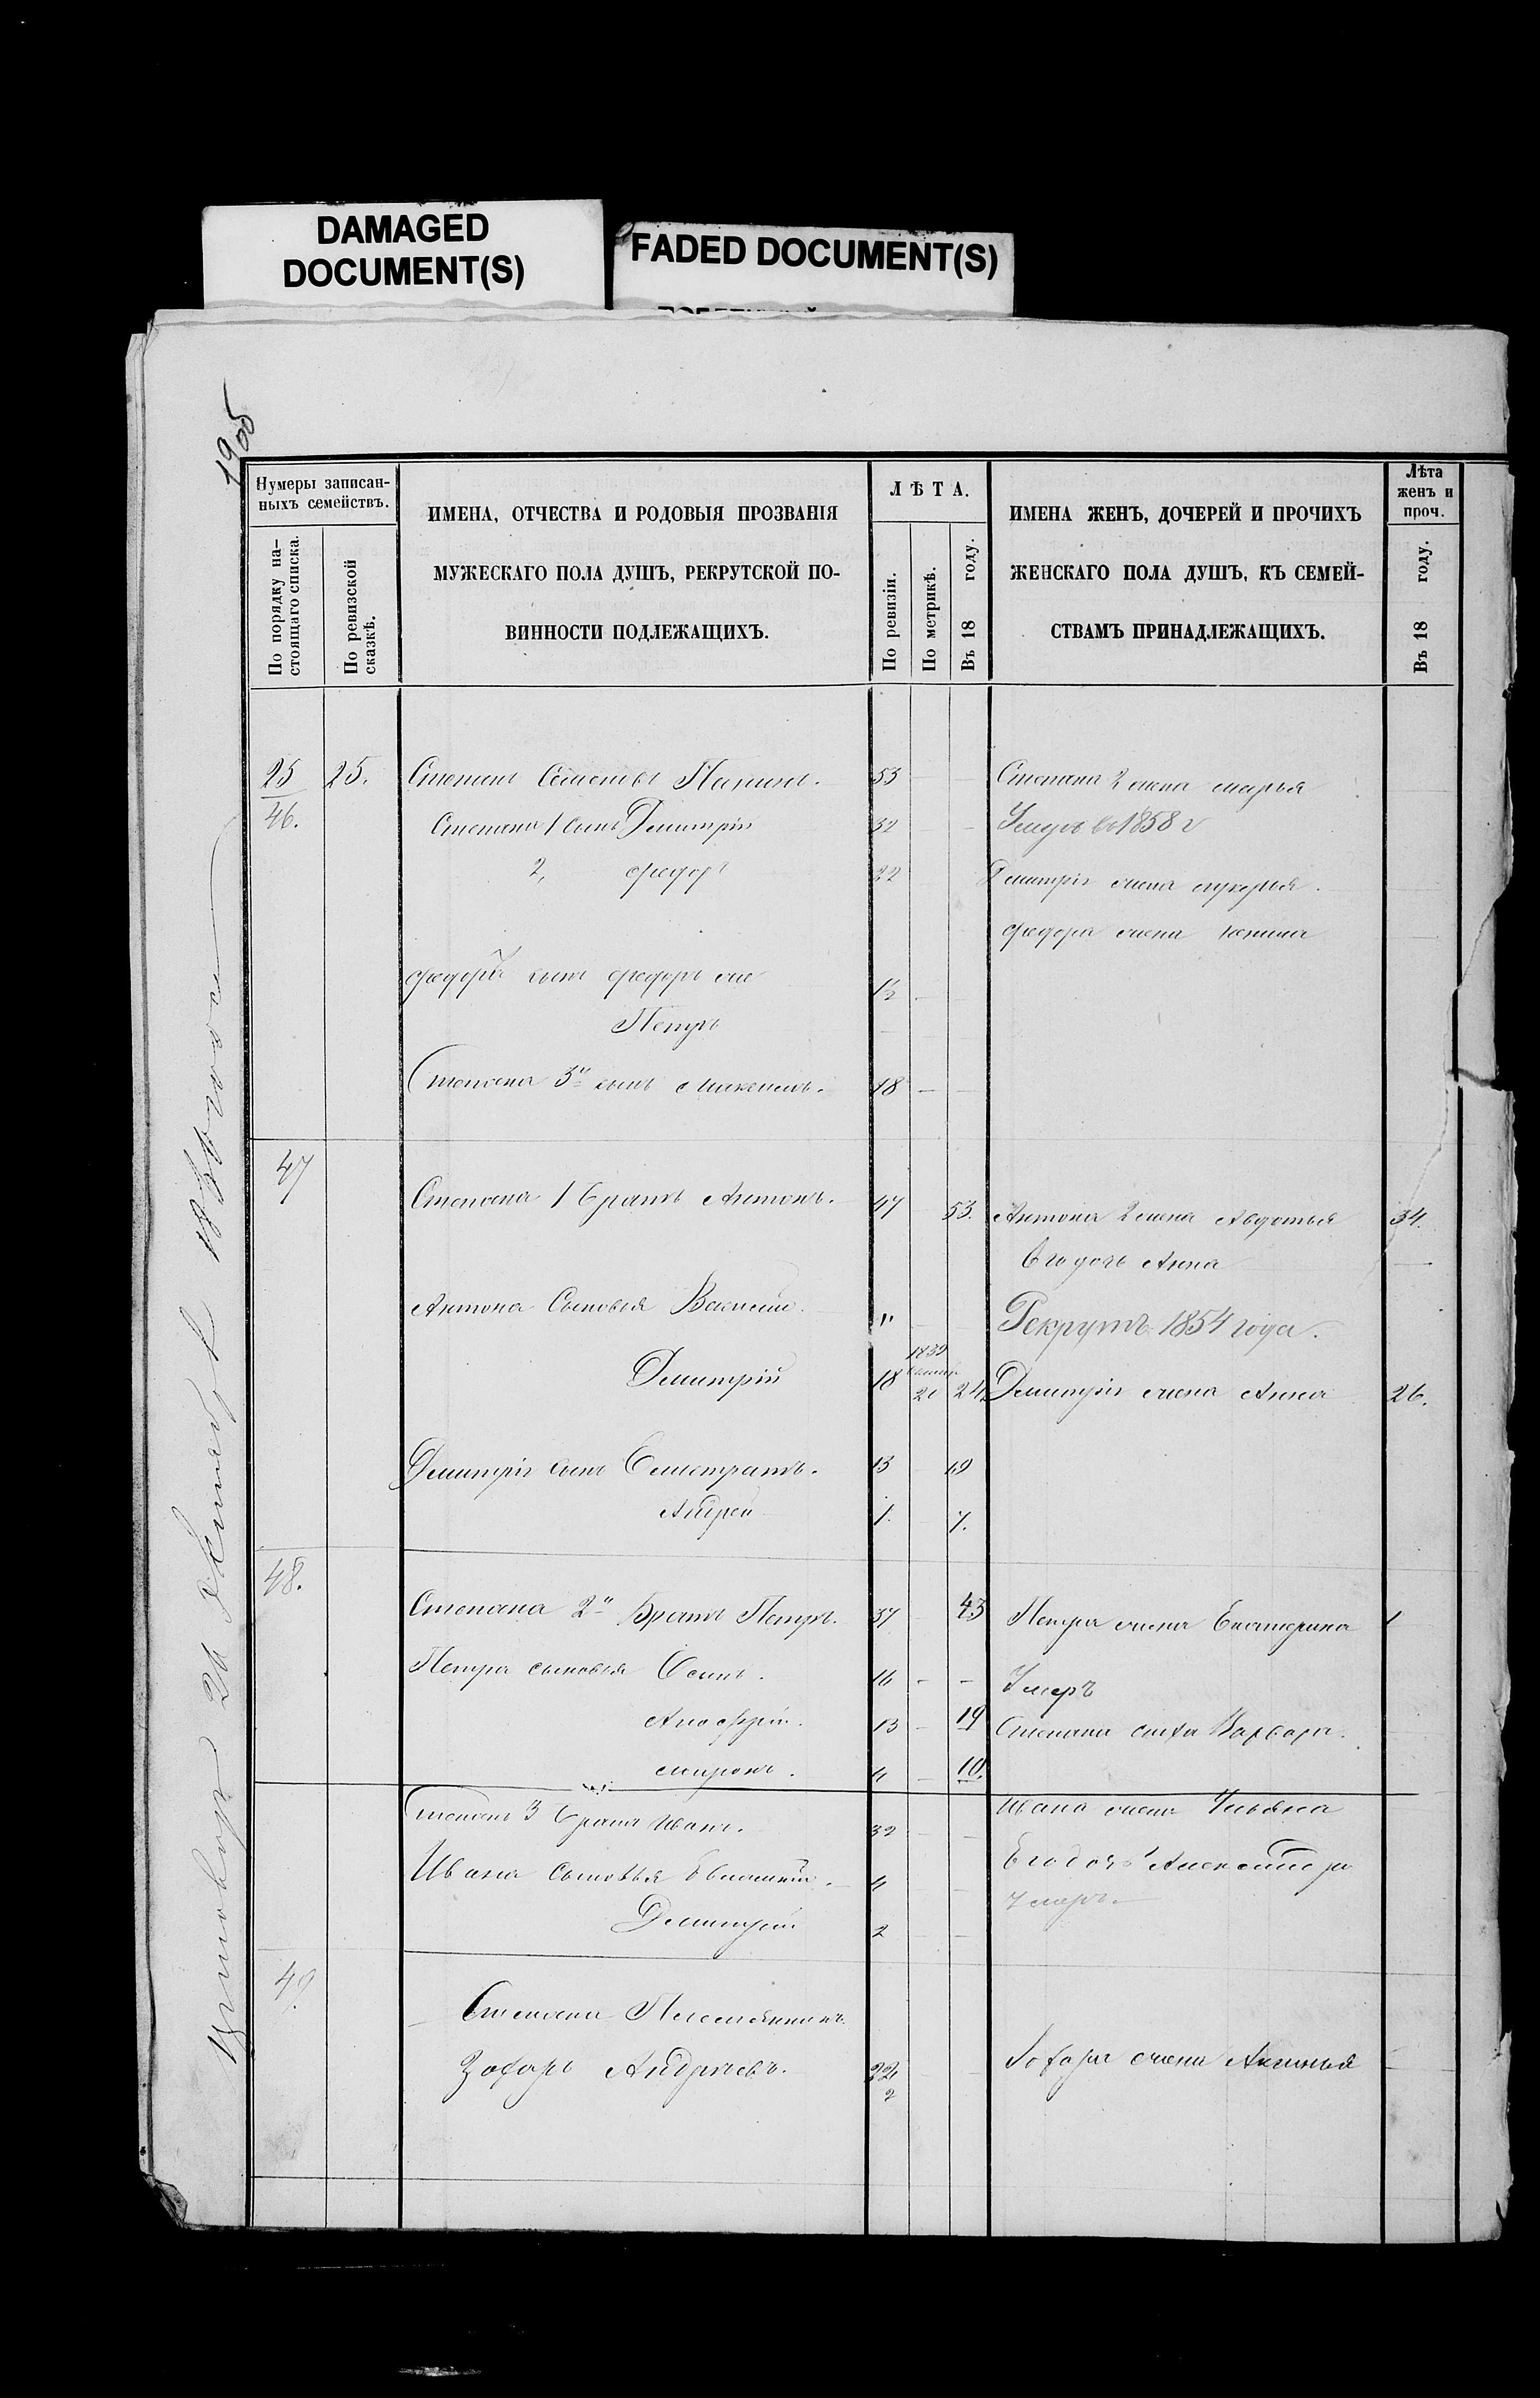 DAMAGED
DOCUMENT(S)
FADED DOCUMENT(S)
1905
Нумеры записан-
ныхъ семействъ.
По порядку на-
стоящаго списка.
По ревизской
сказкѣ.
ИМЕНА, ОТЧЕСТВА И РОДОВЫЯ ПРОЗВАНІЯ
МУЖЕСКАГО ПОЛА ДУШЪ, РЕКРУТСКОЙ ПО-
ВИННОСТИ ПОДЛЕЖАЩИХЪ.
ЛѢТА.
По ревизіи.
По метрикѣ.
Въ 18 году.
ИМЕНА ЖЕНЪ, ДОЧЕРЕЙ И ПРОЧИХЪ
ЖЕНСКАГО ПОЛА ДУШЪ, КЪ СЕМЕЙ-
СТВАМЪ ПРИНАДЛЕЖАЩИХЪ.
Лѣта
женъ и
проч.
Въ 18 году.
25 25. Степанъ Семеновъ 53 Степана 2 жена Марья
46. Степана 1 сынъ Дмитрій 32 Умеръ въ 1858 г
2, Федоръ 22 Дмитрія жена Лукерья.
Федора жена
Федора сынъ Федоръ же 1/2
Петръ
Степана 3й сынъ 18 —
47
Степана 1 братъ Антонъ. 47 53. Антона 2 жена Авдотья 34.
Его дочь Анна
Антона сыновья Василій " Рекрутъ 1854 года.
Дмитрій 18 1839 20 24 Дмитрія жена Анна 26.
Дмитрія сынъ 13 19
Андрей 1. 7.
48.
Степана 2й Братъ Петръ. 37 43 Петра жена Екатерина
Петра сыновья Осипъ. 16 - - Умеръ
13 19 Варвара.
Миронъ. 4 10.
Степана 3 братъ Иванъ. 32 Ивана жена Ульяна
Ивана сыновья 4 Его дочь Александра
Дмитрій 2 Умеръ.
49
Степана Племянникъ
Захаръ Андреевъ. 22 Захара жена Аксинья
2